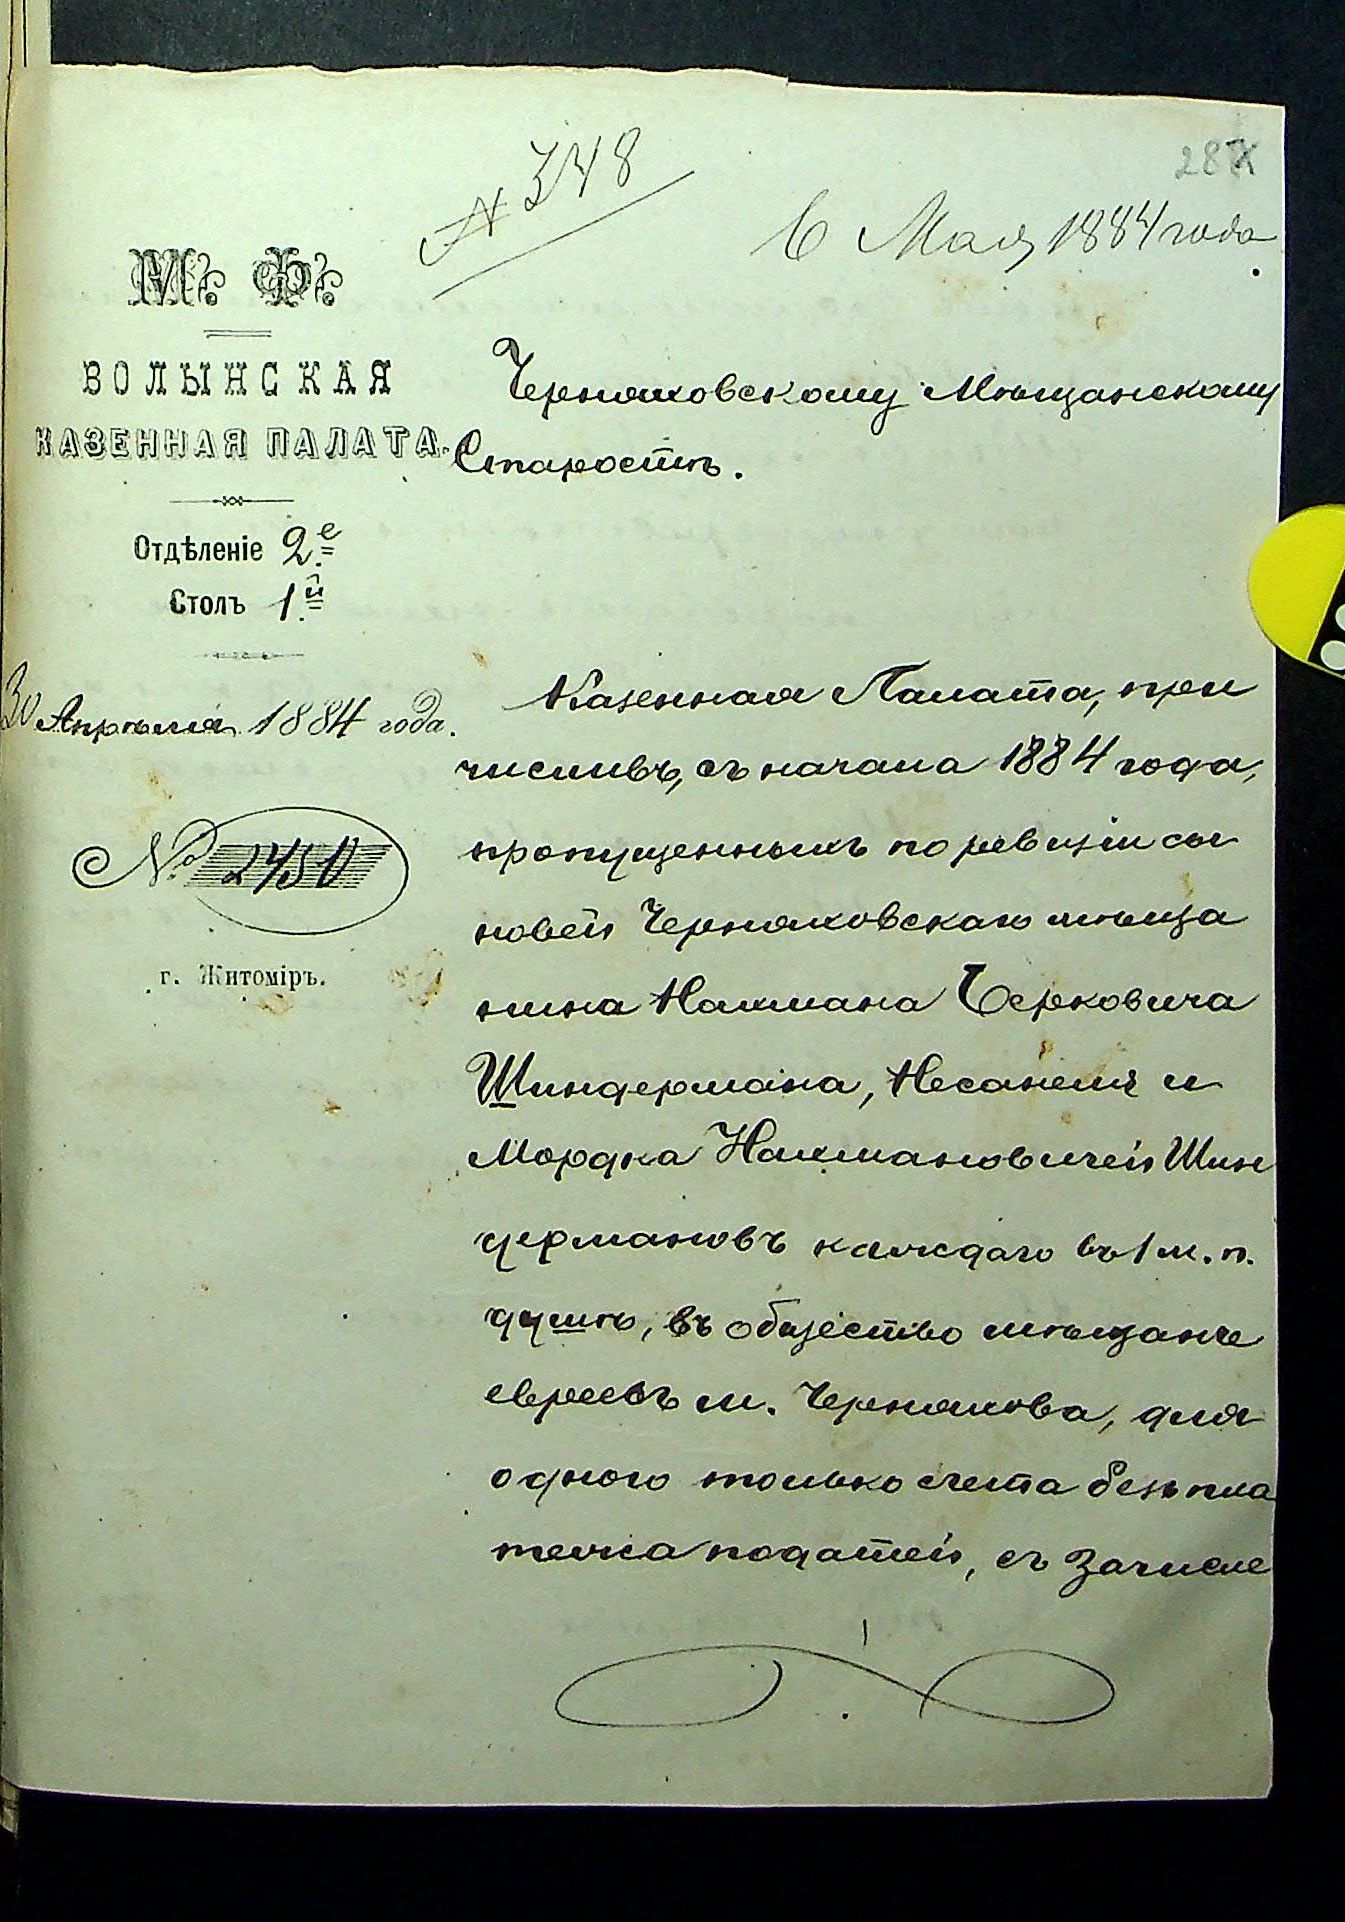 № 348
6 Мая 1884 года
М. Ф.
ВОЛЫНСКАЯ
КАЗЕННАЯ ПАЛАТА.
Отдѣленіе 2е
Столъ 1й
30 Апрѣля 1884 года.
№ 2450
г. Житоміръ.
Черняховскому Мѣщанскому
Старостѣ.
Казенная Палата, при
числивъ, съ начала 1884 года,
пропущенныхъ по ревизіи сы
новей Черняховскаго мѣща
нина Нахмана Берковича
Шиндермана, Несанеля и
Мордка Нахмановичей Шин
дермановъ каждаго въ 1 м. п.
душѣ, въ общество мѣщанъ
евреевъ м. Черняхова, для
одного только счета безъ пла
тежа податей, съ зачисле